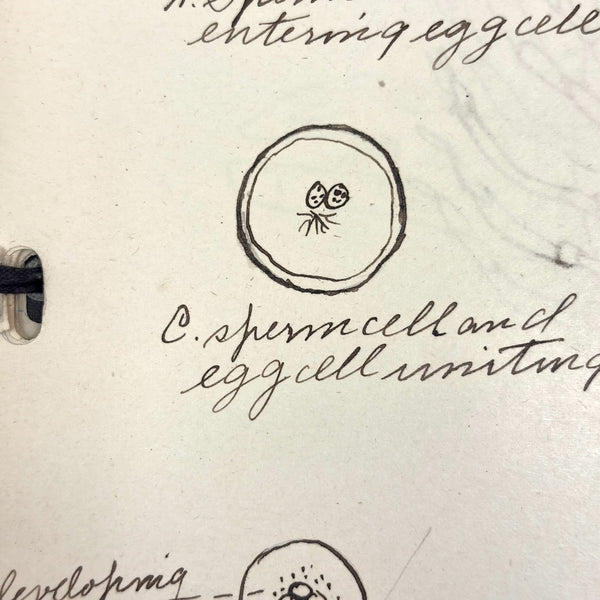 sperm
entering egg cell
C. sperm cell and
egg cell uniting
developing